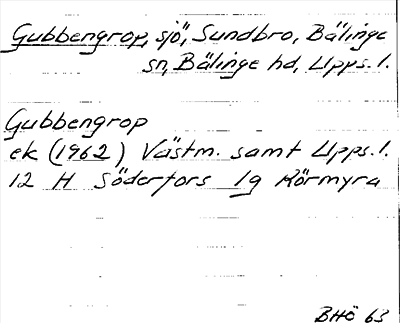 Gubbengrop, sjö, Sundbro, Bälinge
sn, Bälinge hd, Upps. l.
Gubbengrop
ek (1962) Västm. samt Upps. l.
12 H Söderfors 1g Körmyra
BHÖ 63